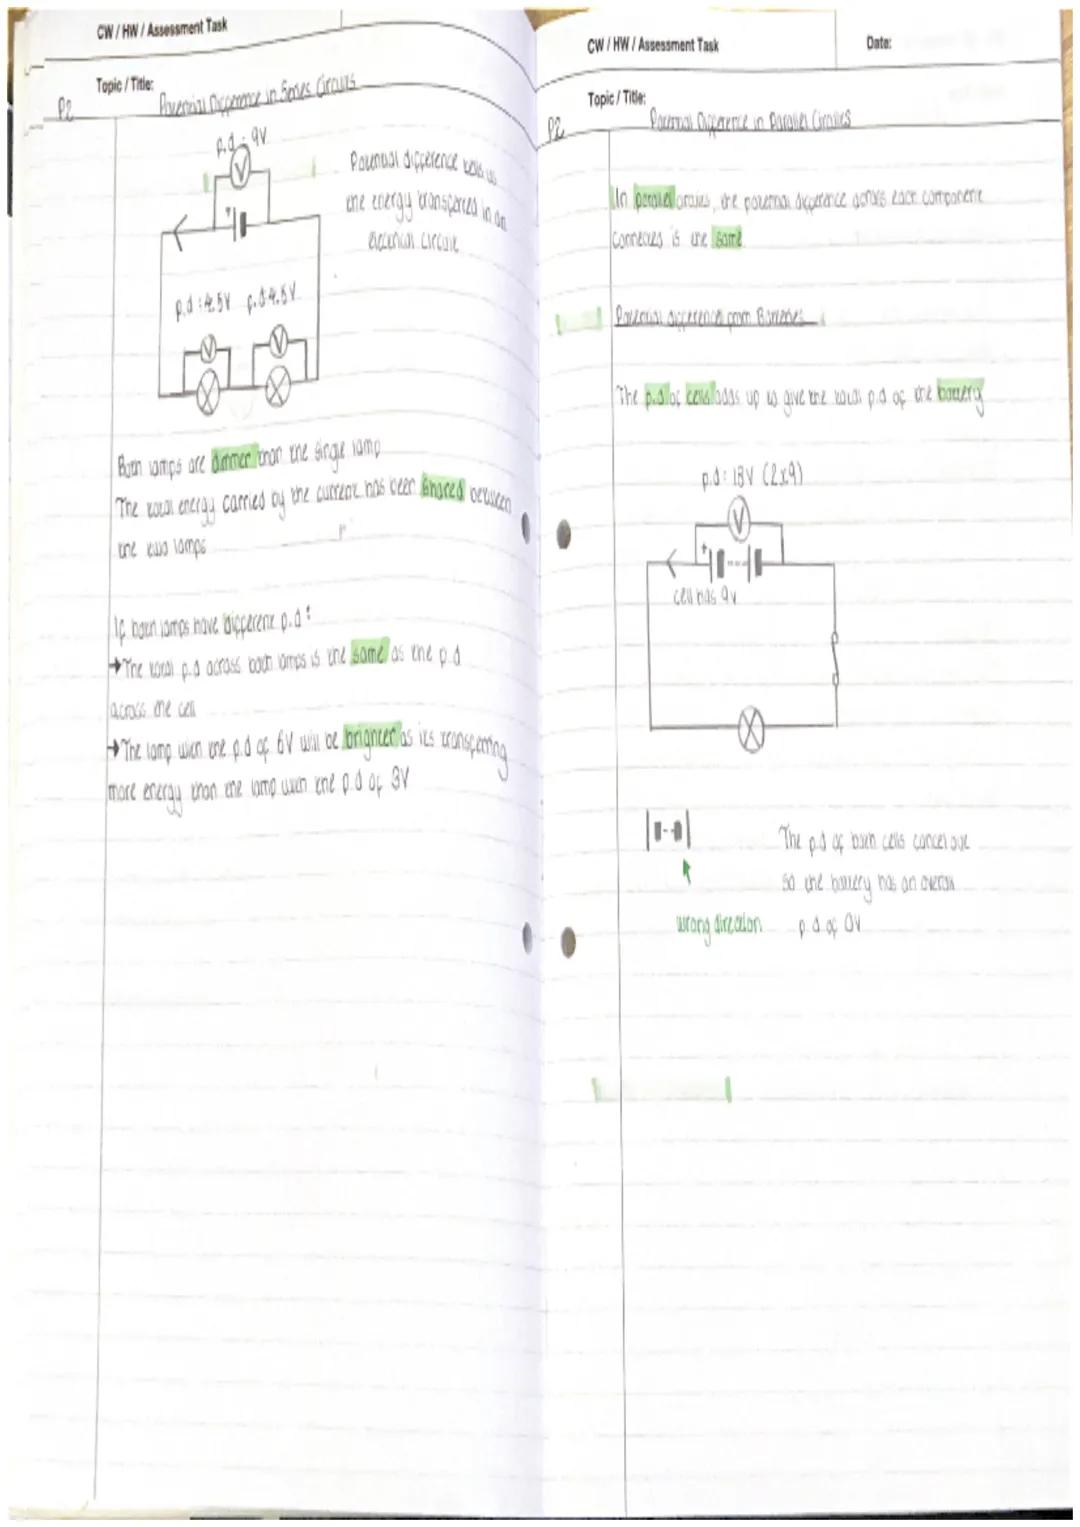 CW / HW / Assessment Task
Topic / Title:
P2
Potential Difference in Series Circuits
p.d = 9V
V
Potential difference tells us
the energy transferred in an
electrical circuit
+
p.d = 4.5V p.d = 4.5V
V V
Both lamps are dimmer than the single lamp
The total energy carried by the current has been shared between
the two lamps
If both lamps have different p.d :
→The total p.d across both lamps is the same as the p.d
across the cell
→The lamp with the p.d of 6V will be brighter as its transferring
more energy than the lamp with the p.d of 3V
CW / HW / Assessment Task
Date:
Topic / Title:
P2
Potential Difference in Parallel Circuits
In parallel circuits, the potential difference across each component
connected is the same.
Potential difference from Batteries
The p.d of cells adds up to give the total p.d of the battery
p.d = 18V (2x9)
V
+
cell has 9v
The p.d of both cells cancel out
so the battery has an overall
wrong direction p.d of 0V